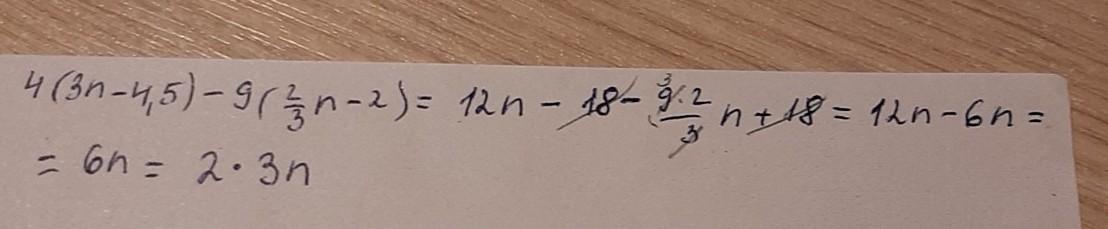 4(3n-4,5)-9(2/3 n-2)= 12n-18-9·2/3 n+18=12n-6n=
=6n=2·3n